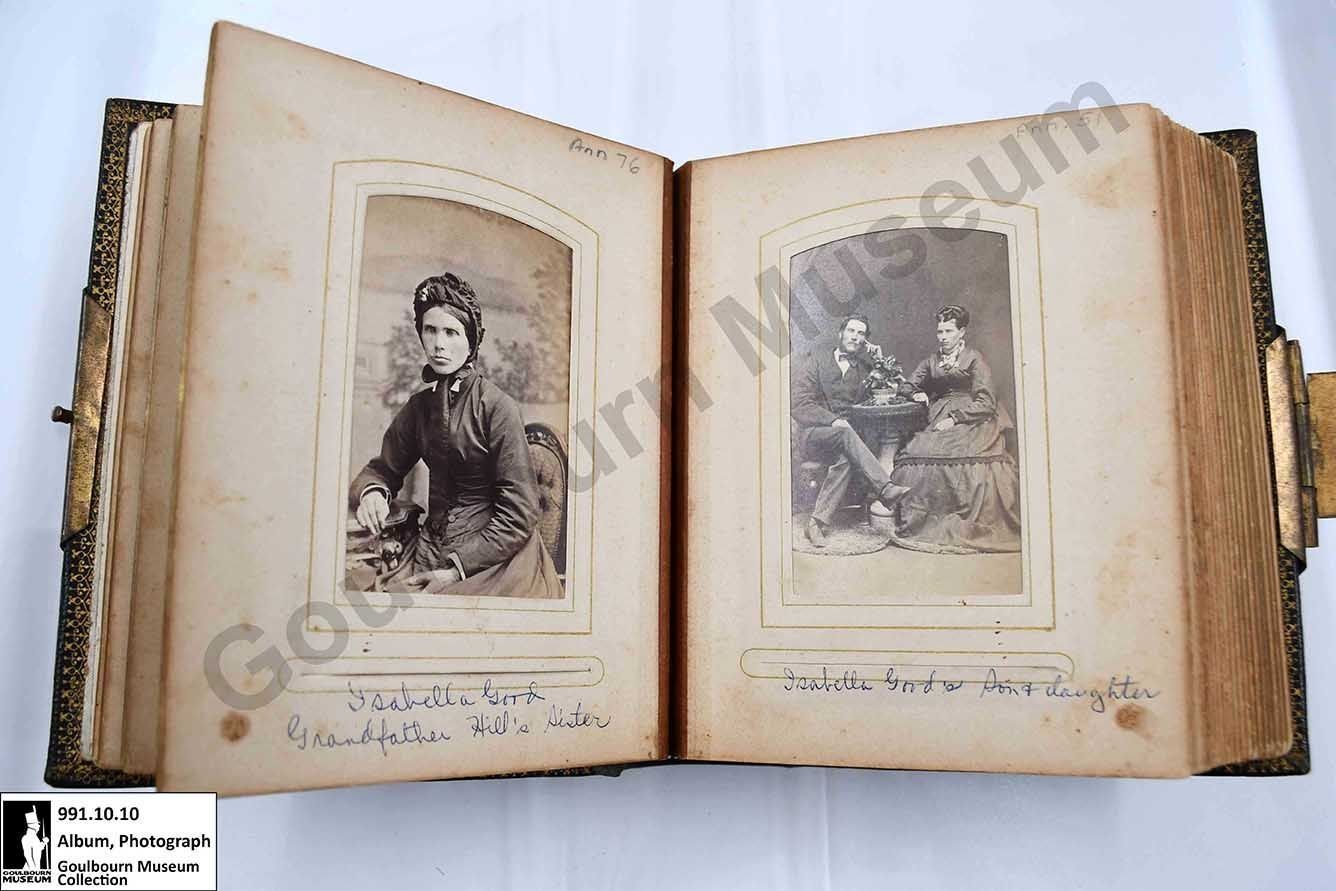 Ann 76
Isabella Gord
Grandfather Hill's Sister
Ann. 51
Isabella Gord's Son & daughter
Goulbourn Museum
991.10.10
Album, Photograph
Goulbourn Museum
Collection
GOULBOURN
MUSEUM